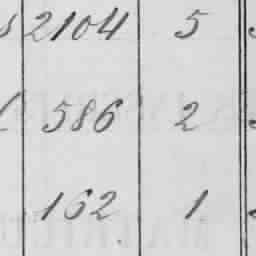 2104 5
586 2
162 1